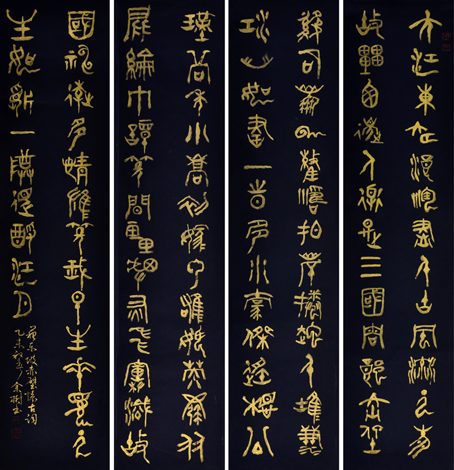 大江東去浪淘盡千古風流人物
故壘西邊人道是三國周郎赤壁
亂石崩雲驚濤拍岸捲起千堆雪
江山如畫一時多少豪傑遙想公
瑾當年小喬初嫁了雄姿英發羽
扇綸巾談笑間檣櫓灰飛煙滅故
國神遊多情應笑我早生華髮人
生如夢一尊還酹江月
蘇東坡赤壁懷古詞